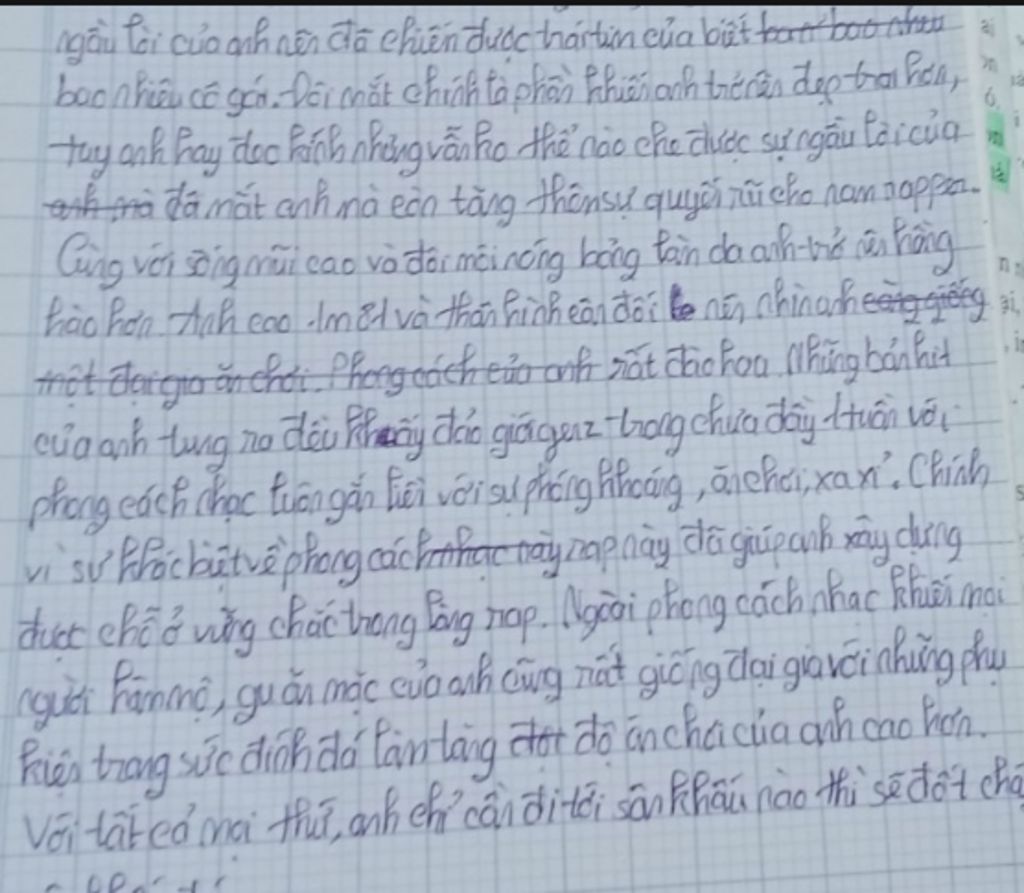 ngầu lòi của anh nên đã chiến được trái tim của biết bao nhiêu
bao nhiêu cô gái. Đôi mắt chính là phần khiến anh trở nên đẹp trai hơn,
tuy anh hay đeo kính nhưng vẫn ko thể nào che được sự ngầu lòi của
anh mà đôi mắt anh mà còn tăng thêm sự quyến rũ cho nam rapper.
Cùng với sóng mũi cao và đôi môi nóng bỏng làn da anh trở nên hồng
hào hơn. Anh cao 1m81 và thân hình cân đối nên nhìn anh càng giống
một đại gia ăn chơi. Phong cách của anh rất đào hoa. Những bản hit
của anh tung ra đều khuấy đảo giới genz trong chưa đầy 1 tuần với
phong cách nhạc luôn gắn liền với sự phóng khoáng, ăn chơi, xa xỉ. Chính
vì sự khác biệt về phong cách nhạc này rap này đã giúp anh xây dựng
được chỗ ở vững chắc trong làng rap. Ngoài phong cách nhạc khiến mọi
người hâm mộ, gu ăn mặc của anh cũng rất giống đại gia với những phụ
kiện trang sức đính đá làm tăng độ ăn chơi của anh cao hơn.
Với tất cả mọi thứ, anh chỉ cần đi tới sân khấu nào thì sẽ đốt chá